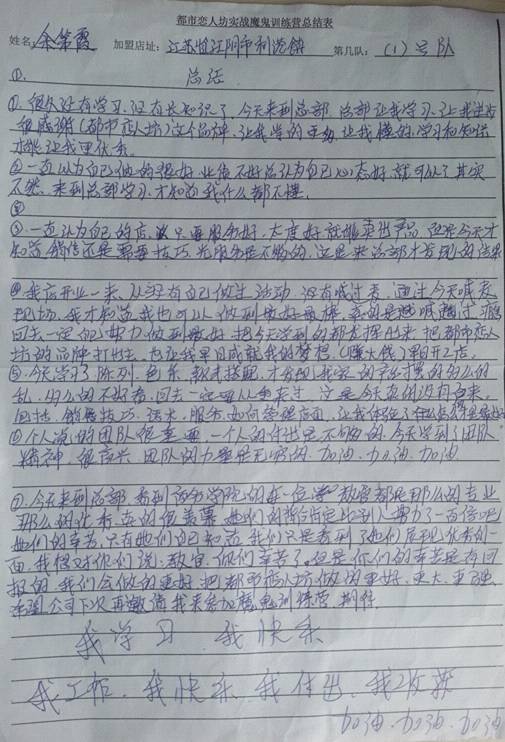 都市恋人坊实战魔鬼训练营总结表
姓名:余第霞 加盟店址:江苏省江阴市利港镇 第几队:(1)号队
①. 总结
①.很久没有学习.没有长知识了,今天来到总部.总部让我学习.让我进步
很感谢(都市恋人坊)这个品牌.让我学的更多,让我懂的学习和知识
才能让我更优秀.
②一直认为自己做的很好,业绩不好总认为自己心态好.就可以了其实
不然.来到总部学习.才知道我什么都不懂.
③
③一直认为自己的店 只要服务好.太度好就能卖出产品.但是今天才
知道销售还是需要技巧.光服务是不够的.这是来总部才发现的结果
④我店开业一来.从没有自己做过活动.没有喊过麦.通过今天喊麦
现场,我才知道我也可以做到最好最棒.真的是越喊越过瘾
回去一定的努力做到最好.把今天学到的都发挥出来.把都市恋人
坊的品牌打出去.也让我早日成就我的梦想(赚大钱)早日开2店.
⑤今天学习了陈列.色系.款式搭配.才发现我家的产品摆的多么的
乱.多么的不好看.回去一定要从重来过.这是今天真的没有白来.
包括.销售技巧.话术.服务.如何管理店面.让我体验了
⑥个人说的团队很重要.一个人的付出是不够的.今天学到了团队
精神.很高兴.团队的力量是无穷的.加油.加油.加油
⑦.今天来到总部.看到商学院的每一位教官都是那么的专业
那么的优秀.真的很羡慕.她们的背后肯定比别人努力了一百倍吧
她们的辛苦.只有她们自己知道.我们只是看到了她们展现优秀的一
面.我想对你们说:教官.你们辛苦了.但是你们的辛苦是有回
报的.我们会做的更好.把都市恋人坊做的更好.更大.更强.
希望公司下次再邀请我来参加魔鬼训练营.期待.
我学习.我快乐
我工作.我快乐.我付出.我收获
加油.加油.加油